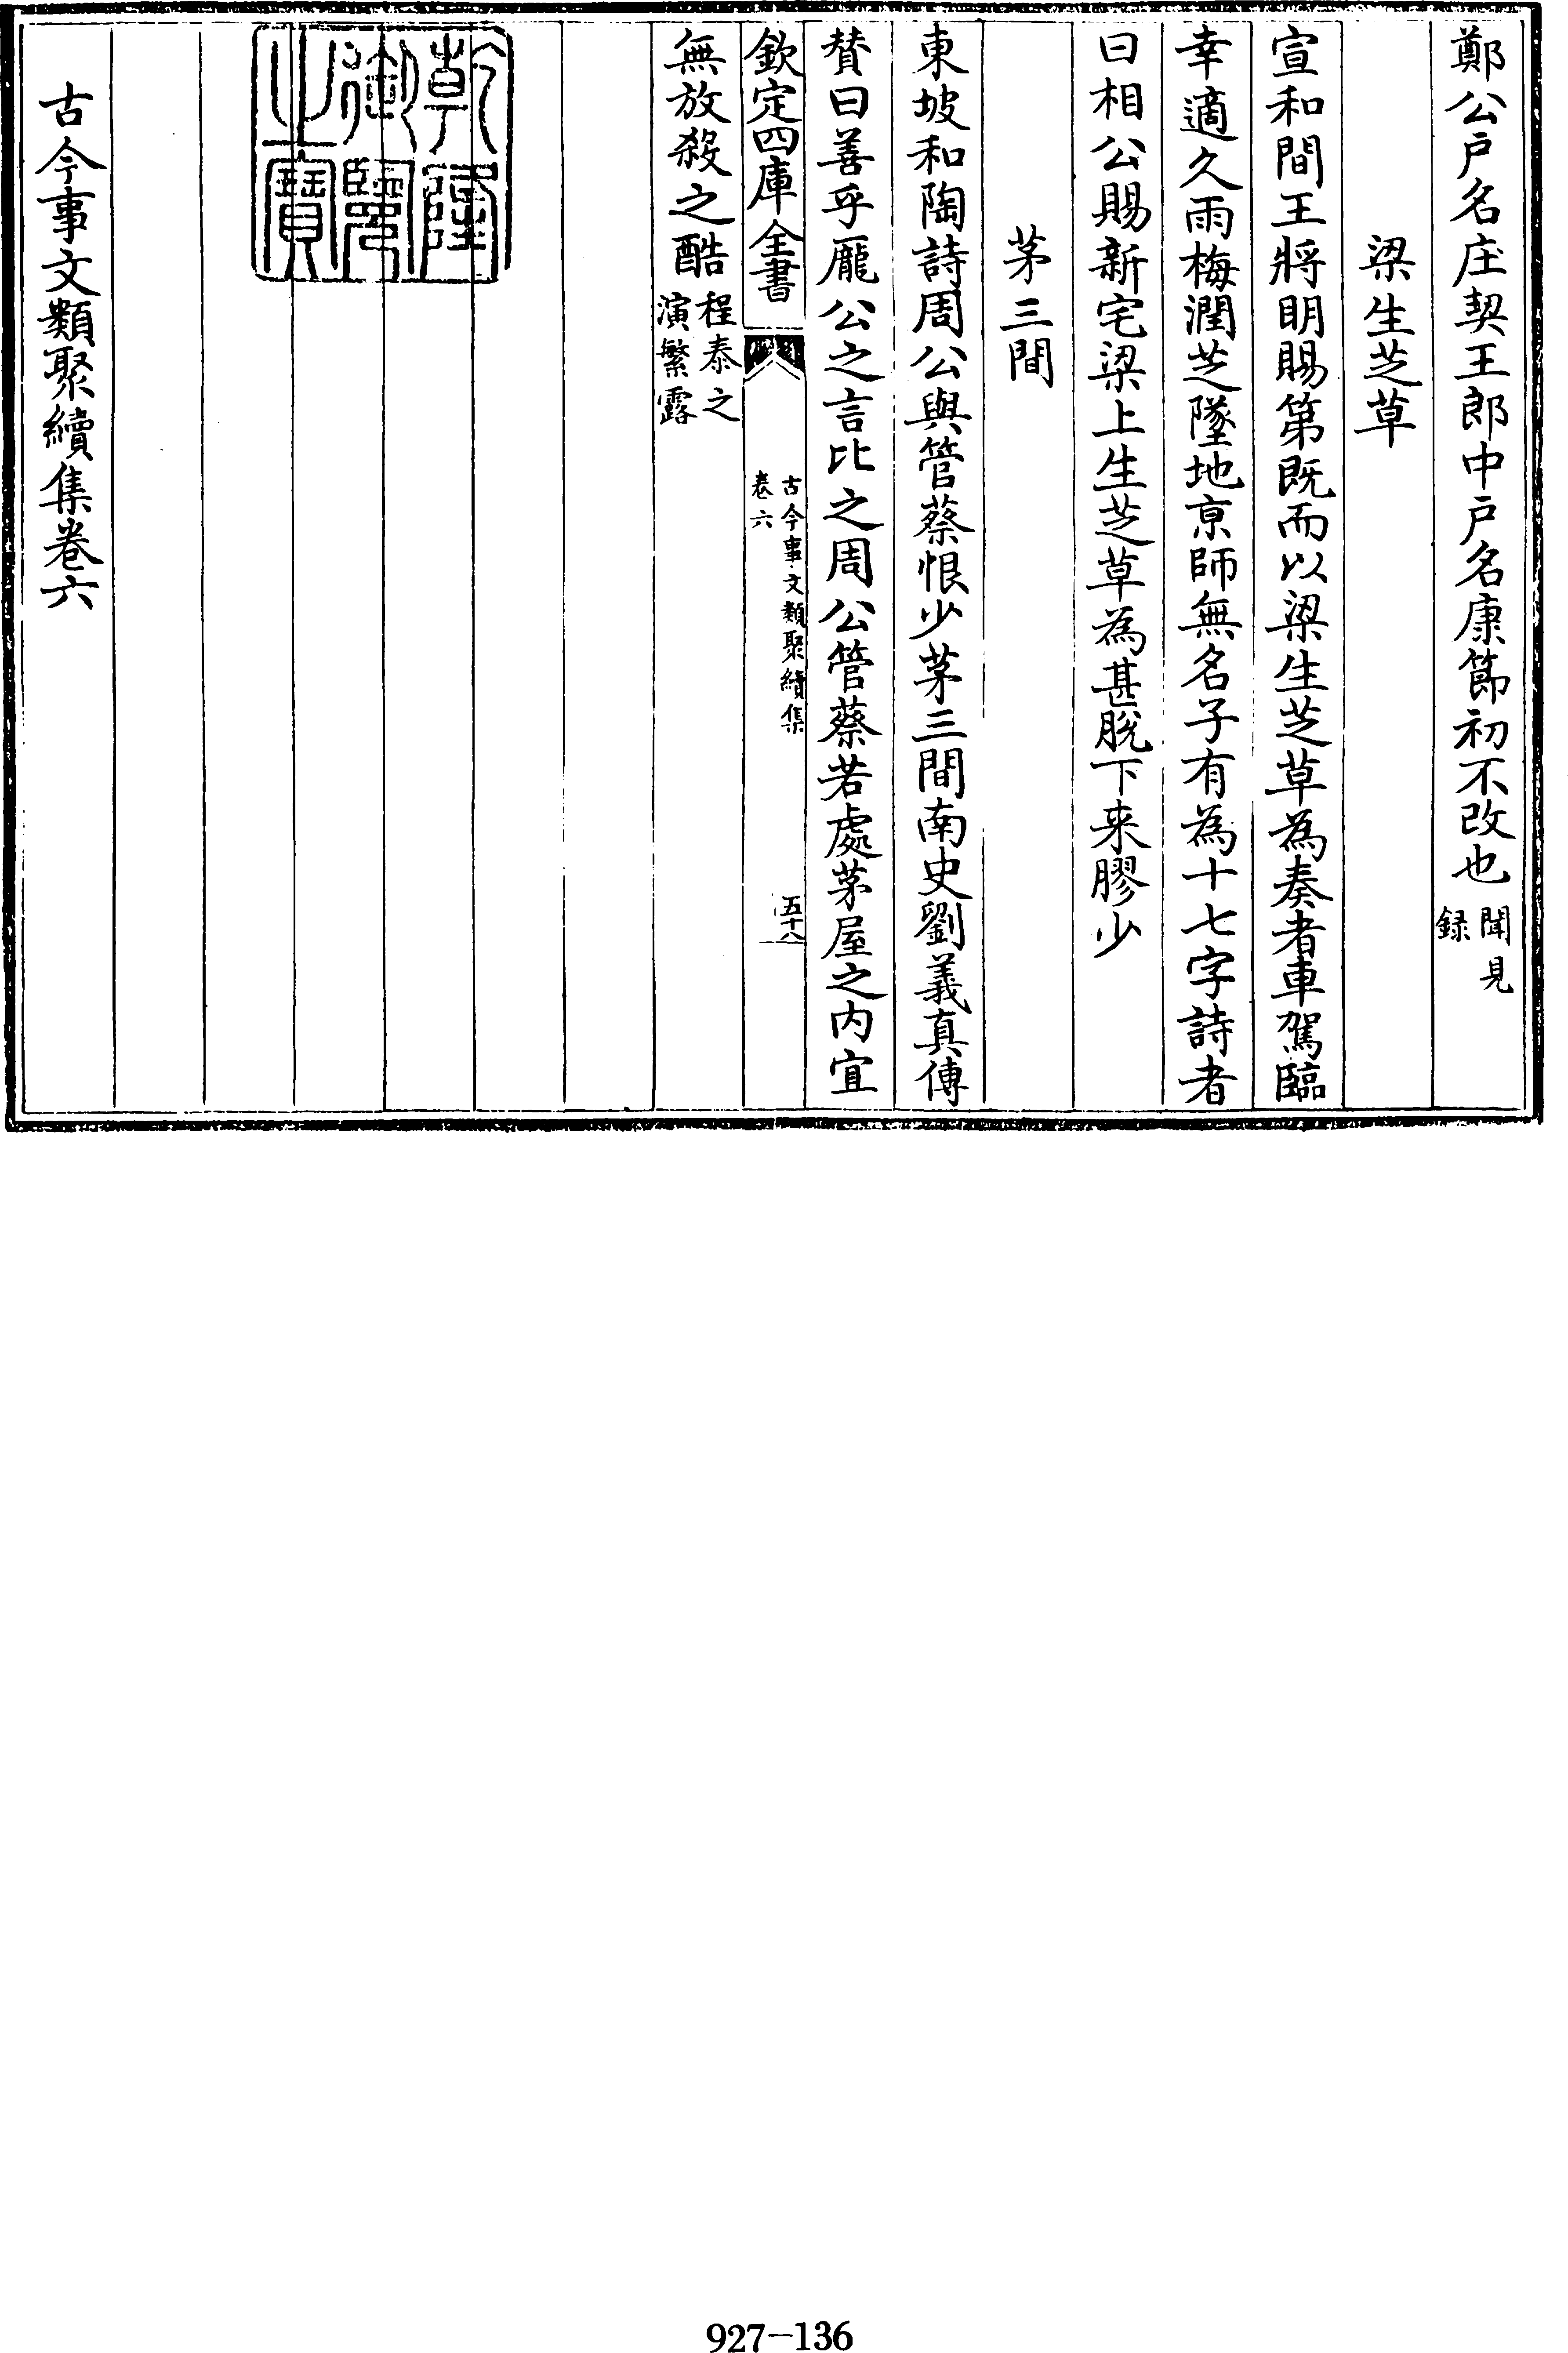 鄭公户名庄契王郎中户名康節初不改也聞見録
梁生芝草
宣和間王將明賜第既而以梁生芝草為奏者車駕臨
幸適久雨梅潤芝墜地京師無名子有為十七字詩者
曰相公賜新宅梁上生芝草為甚脱下来膠少
茅三間
東坡和陶詩周公與管蔡恨少茅三間南史劉義真傳
賛曰善乎龐公之言比之周公管蔡若處茅屋之内宜
欽定四庫全書
古今事文類聚續集
卷六
五十八
無放殺之酷程泰之演繁露
乾隆御覽之寶
古今事文類聚續集卷六
927-136